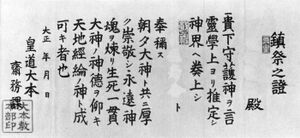 鎮祭之證
殿
一貴下守護神ヲ言
靈學上ヨリ推定シ
神界ヘ奏上シ
ト
奉稱ス
朝夕大神ト共ニ厚
ク崇敬シ永遠神
魂ヲ煉リ生死一貫
大神ノ神德ヲ仰キ
天地經綸ノ神ト成
可キ者也
大正 年 月 日
皇道大本
齋務課